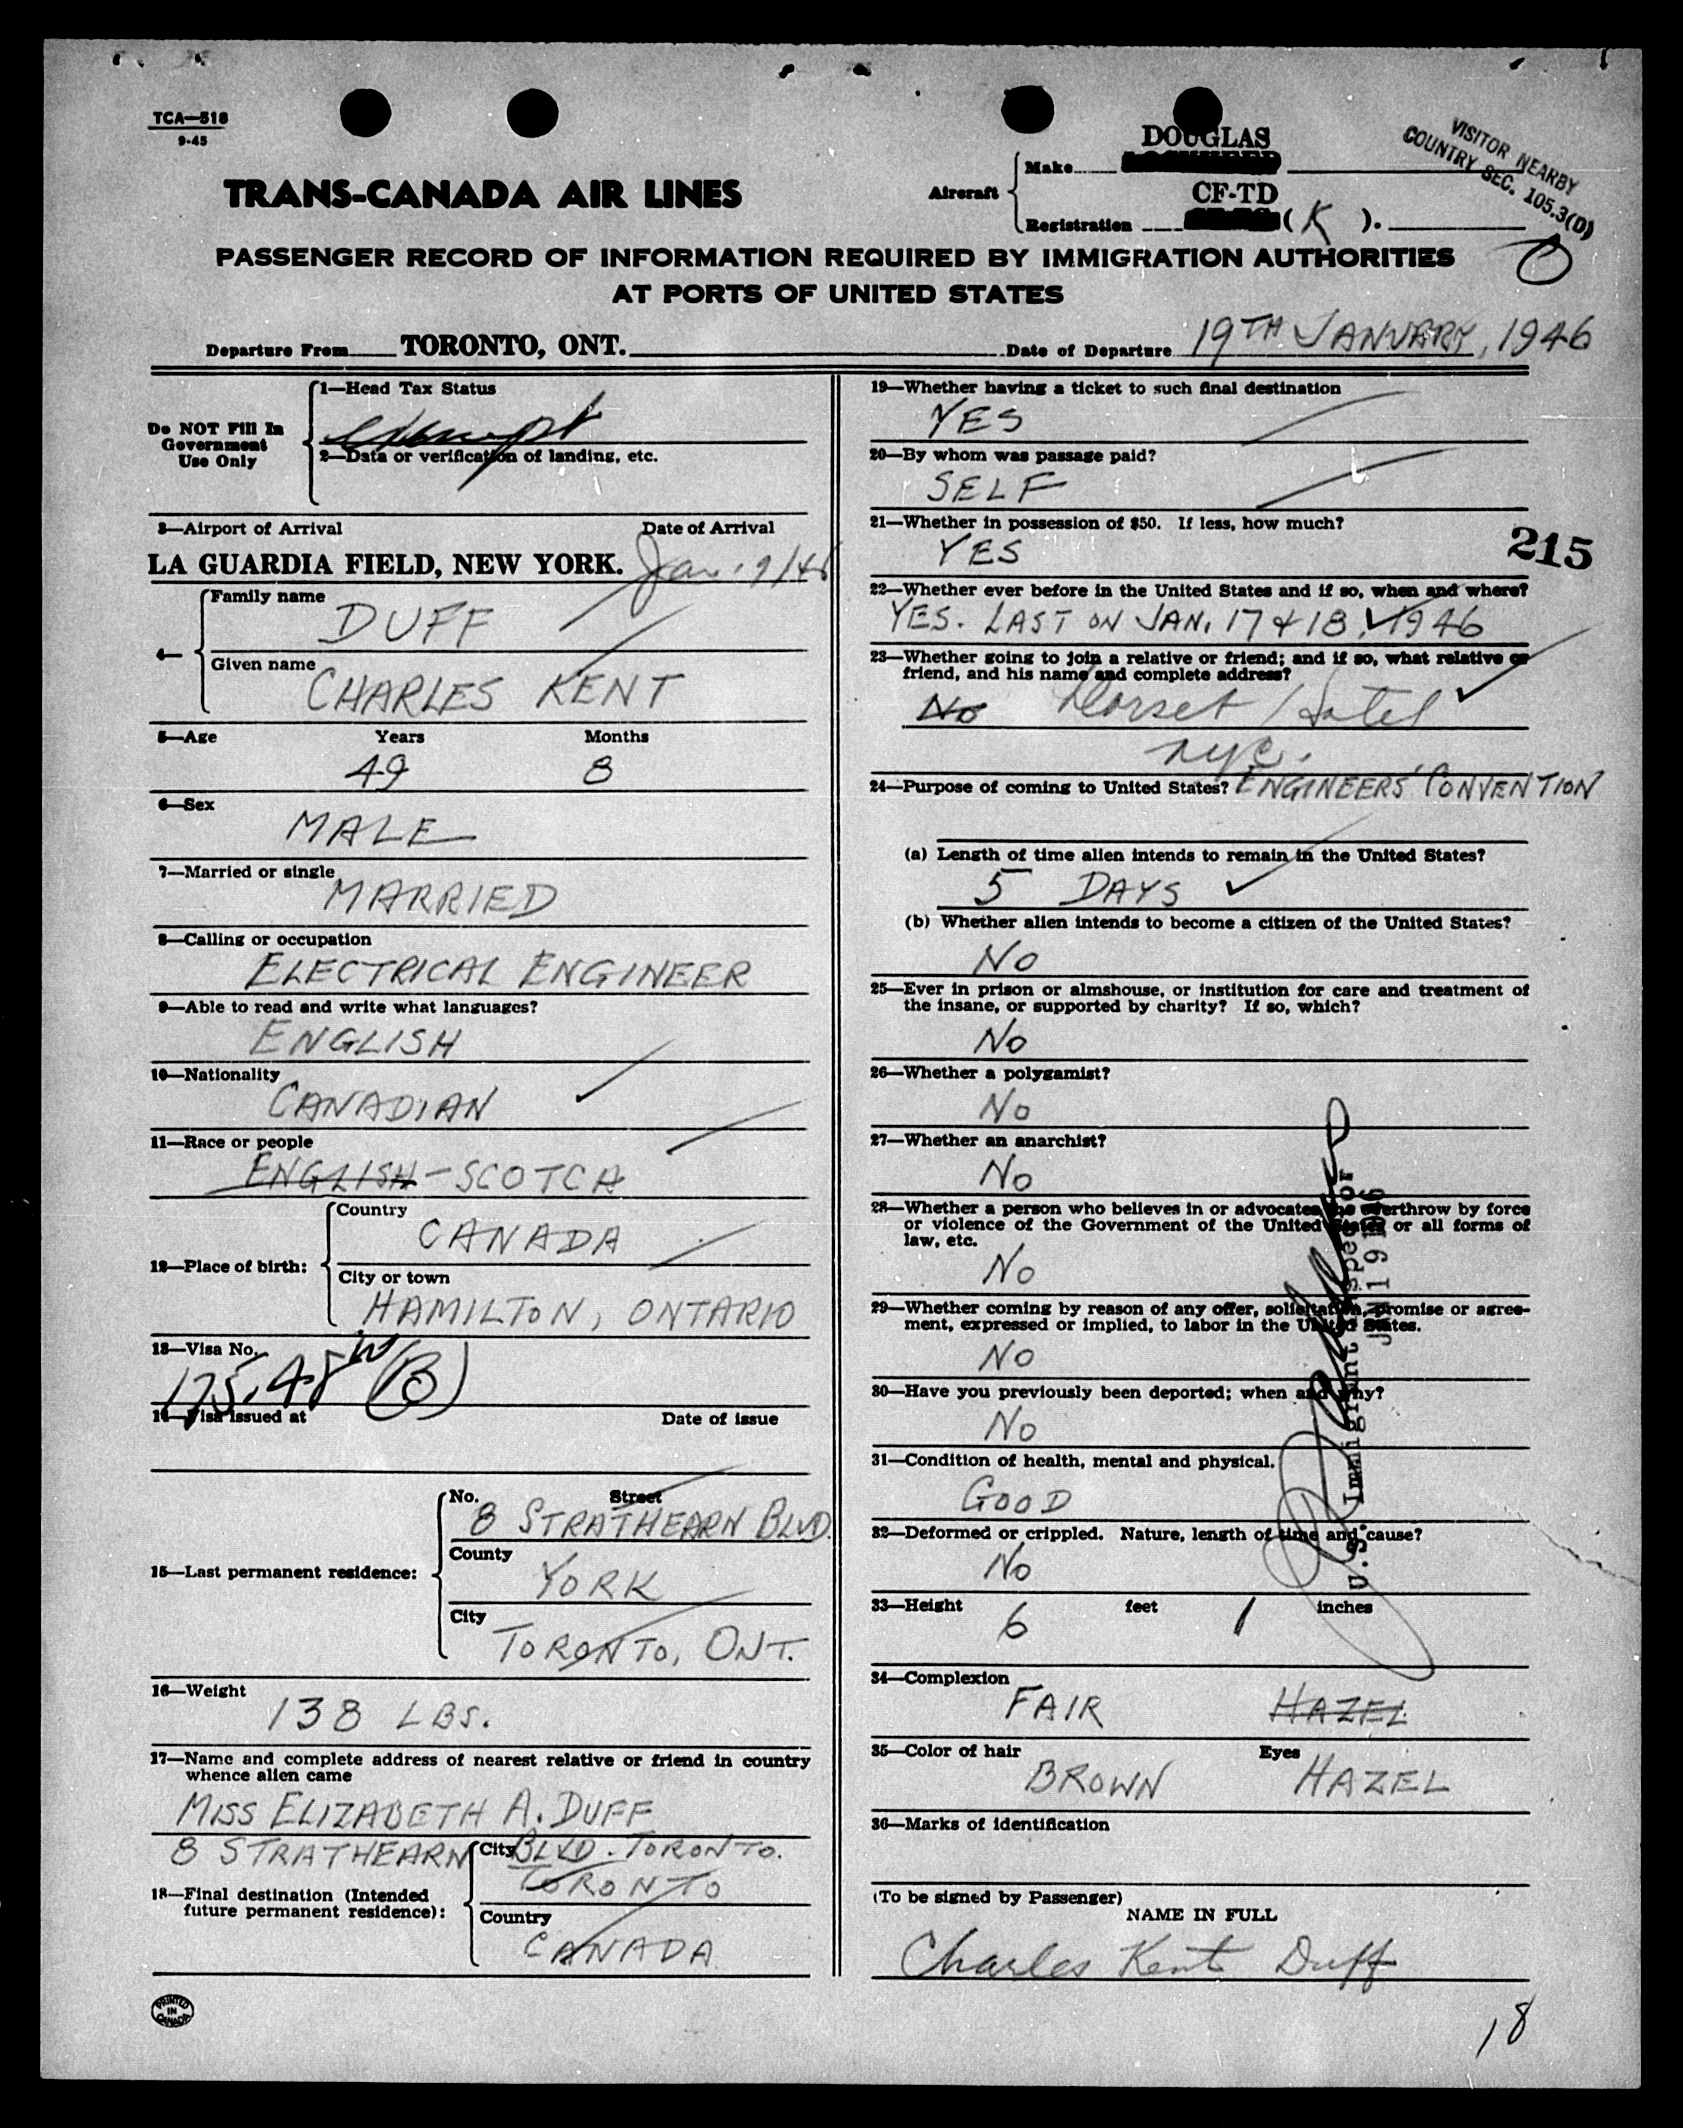 TCA—518
9-45
DOUGLAS
Make
VISITOR NEARBY
COUNTRY SEC. 105.3(D)
TRANS-CANADA AIR LINES
Aircraft
CF-TD
Registration (K).
PASSENGER RECORD OF INFORMATION REQUIRED BY IMMIGRATION AUTHORITIES
AT PORTS OF UNITED STATES
Departure From TORONTO, ONT. Date of Departure 19TH JANUARY, 1946
Do NOT Fill In
Government
Use Only
1—Head Tax Status
exempt
2—Data or verification of landing, etc.
3—Airport of Arrival Date of Arrival
LA GUARDIA FIELD, NEW YORK.
4—
Family name
DUFF
Given name
CHARLES KENT
5—Age Years Months
49 8
6—Sex
MALE
7—Married or single
MARRIED
8—Calling or occupation
ELECTRICAL ENGINEER
9—Able to read and write what languages?
ENGLISH
10—Nationality
CANADIAN
11—Race or people
ENGLISH-SCOTCH
12—Place of birth:
Country
CANADA
City or town
HAMILTON, ONTARIO
13—Visa No.
175.48 (B)
14—Visa issued at Date of issue
15—Last permanent residence:
No. Street
8 STRATHEARN BLVD.
County
YORK
City
TORONTO, ONT.
16—Weight
138 LBS.
17—Name and complete address of nearest relative or friend in country
whence alien came
MISS ELIZABETH A. DUFF
8 STRATHEARN BLVD. TORONTO.
18—Final destination (Intended
future permanent residence):
City
TORONTO
Country
CANADA
PRINTED
IN
CANADA
19—Whether having a ticket to such final destination
YES
20—By whom was passage paid?
SELF
21—Whether in possession of $50. If less, how much?
YES
215
22—Whether ever before in the United States and if so, when and where?
YES. LAST ON JAN. 17 & 18, 1946
23—Whether going to join a relative or friend; and if so, what relative or
friend, and his name and complete address?
No Dorset Hotel
nyc.
24—Purpose of coming to United States? ENGINEERS' CONVENTION
(a) Length of time alien intends to remain in the United States?
5 DAYS
(b) Whether alien intends to become a citizen of the United States?
No
25—Ever in prison or almshouse, or institution for care and treatment of
the insane, or supported by charity? If so, which?
No
26—Whether a polygamist?
No
27—Whether an anarchist?
No
28—Whether a person who believes in or advocates the overthrow by force
or violence of the Government of the United States or all forms of
law, etc.
No
29—Whether coming by reason of any offer, solicitation, promise or agree-
ment, expressed or implied, to labor in the United States.
No
30—Have you previously been deported; when and why?
No
31—Condition of health, mental and physical.
GOOD
32—Deformed or crippled. Nature, length of time and cause?
No
33—Height 6 feet 1 inches
U.S. Immigrant Inspector
JAN 19 1946
34—Complexion
FAIR HAZEL
35—Color of hair Eyes
BROWN HAZEL
36—Marks of identification
(To be signed by Passenger)
NAME IN FULL
Charles Kent Duff
18